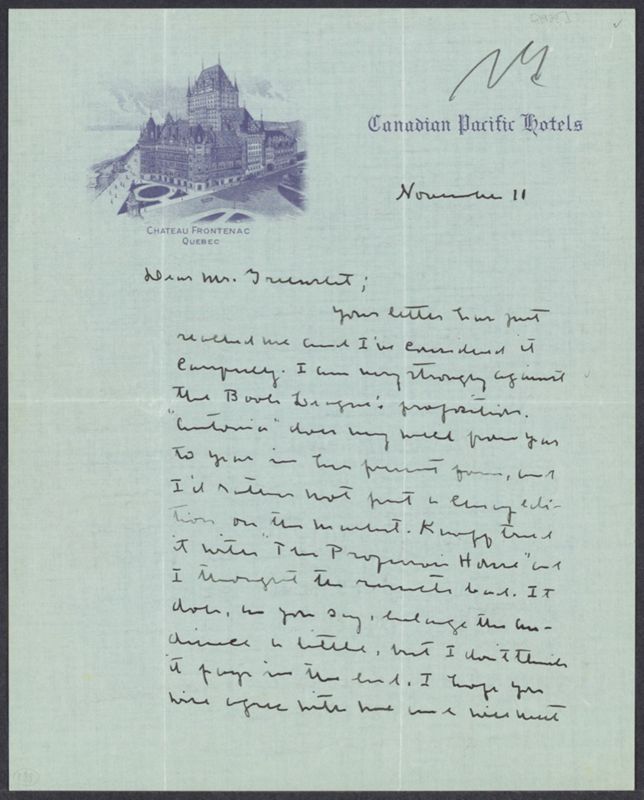 Canadian Pacific Hotels
CHATEAU FRONTENAC
QUEBEC
November 11
Dear Mr. Greenslet;
Your letter has just
reached me and I've considered it
carefully. I am very strongly against
the Book League's proposition.
"Antonia" does very well from year
to year in her present form, and
I'd rather not put a cheap edi-
tion on the market. Knopf tried
it with "The Professor's House" and
I thought the results bad. It
does, as you say, enlarge the au-
dience a little, but I don't think
it pays in the end. I hope you
will agree with me and will not